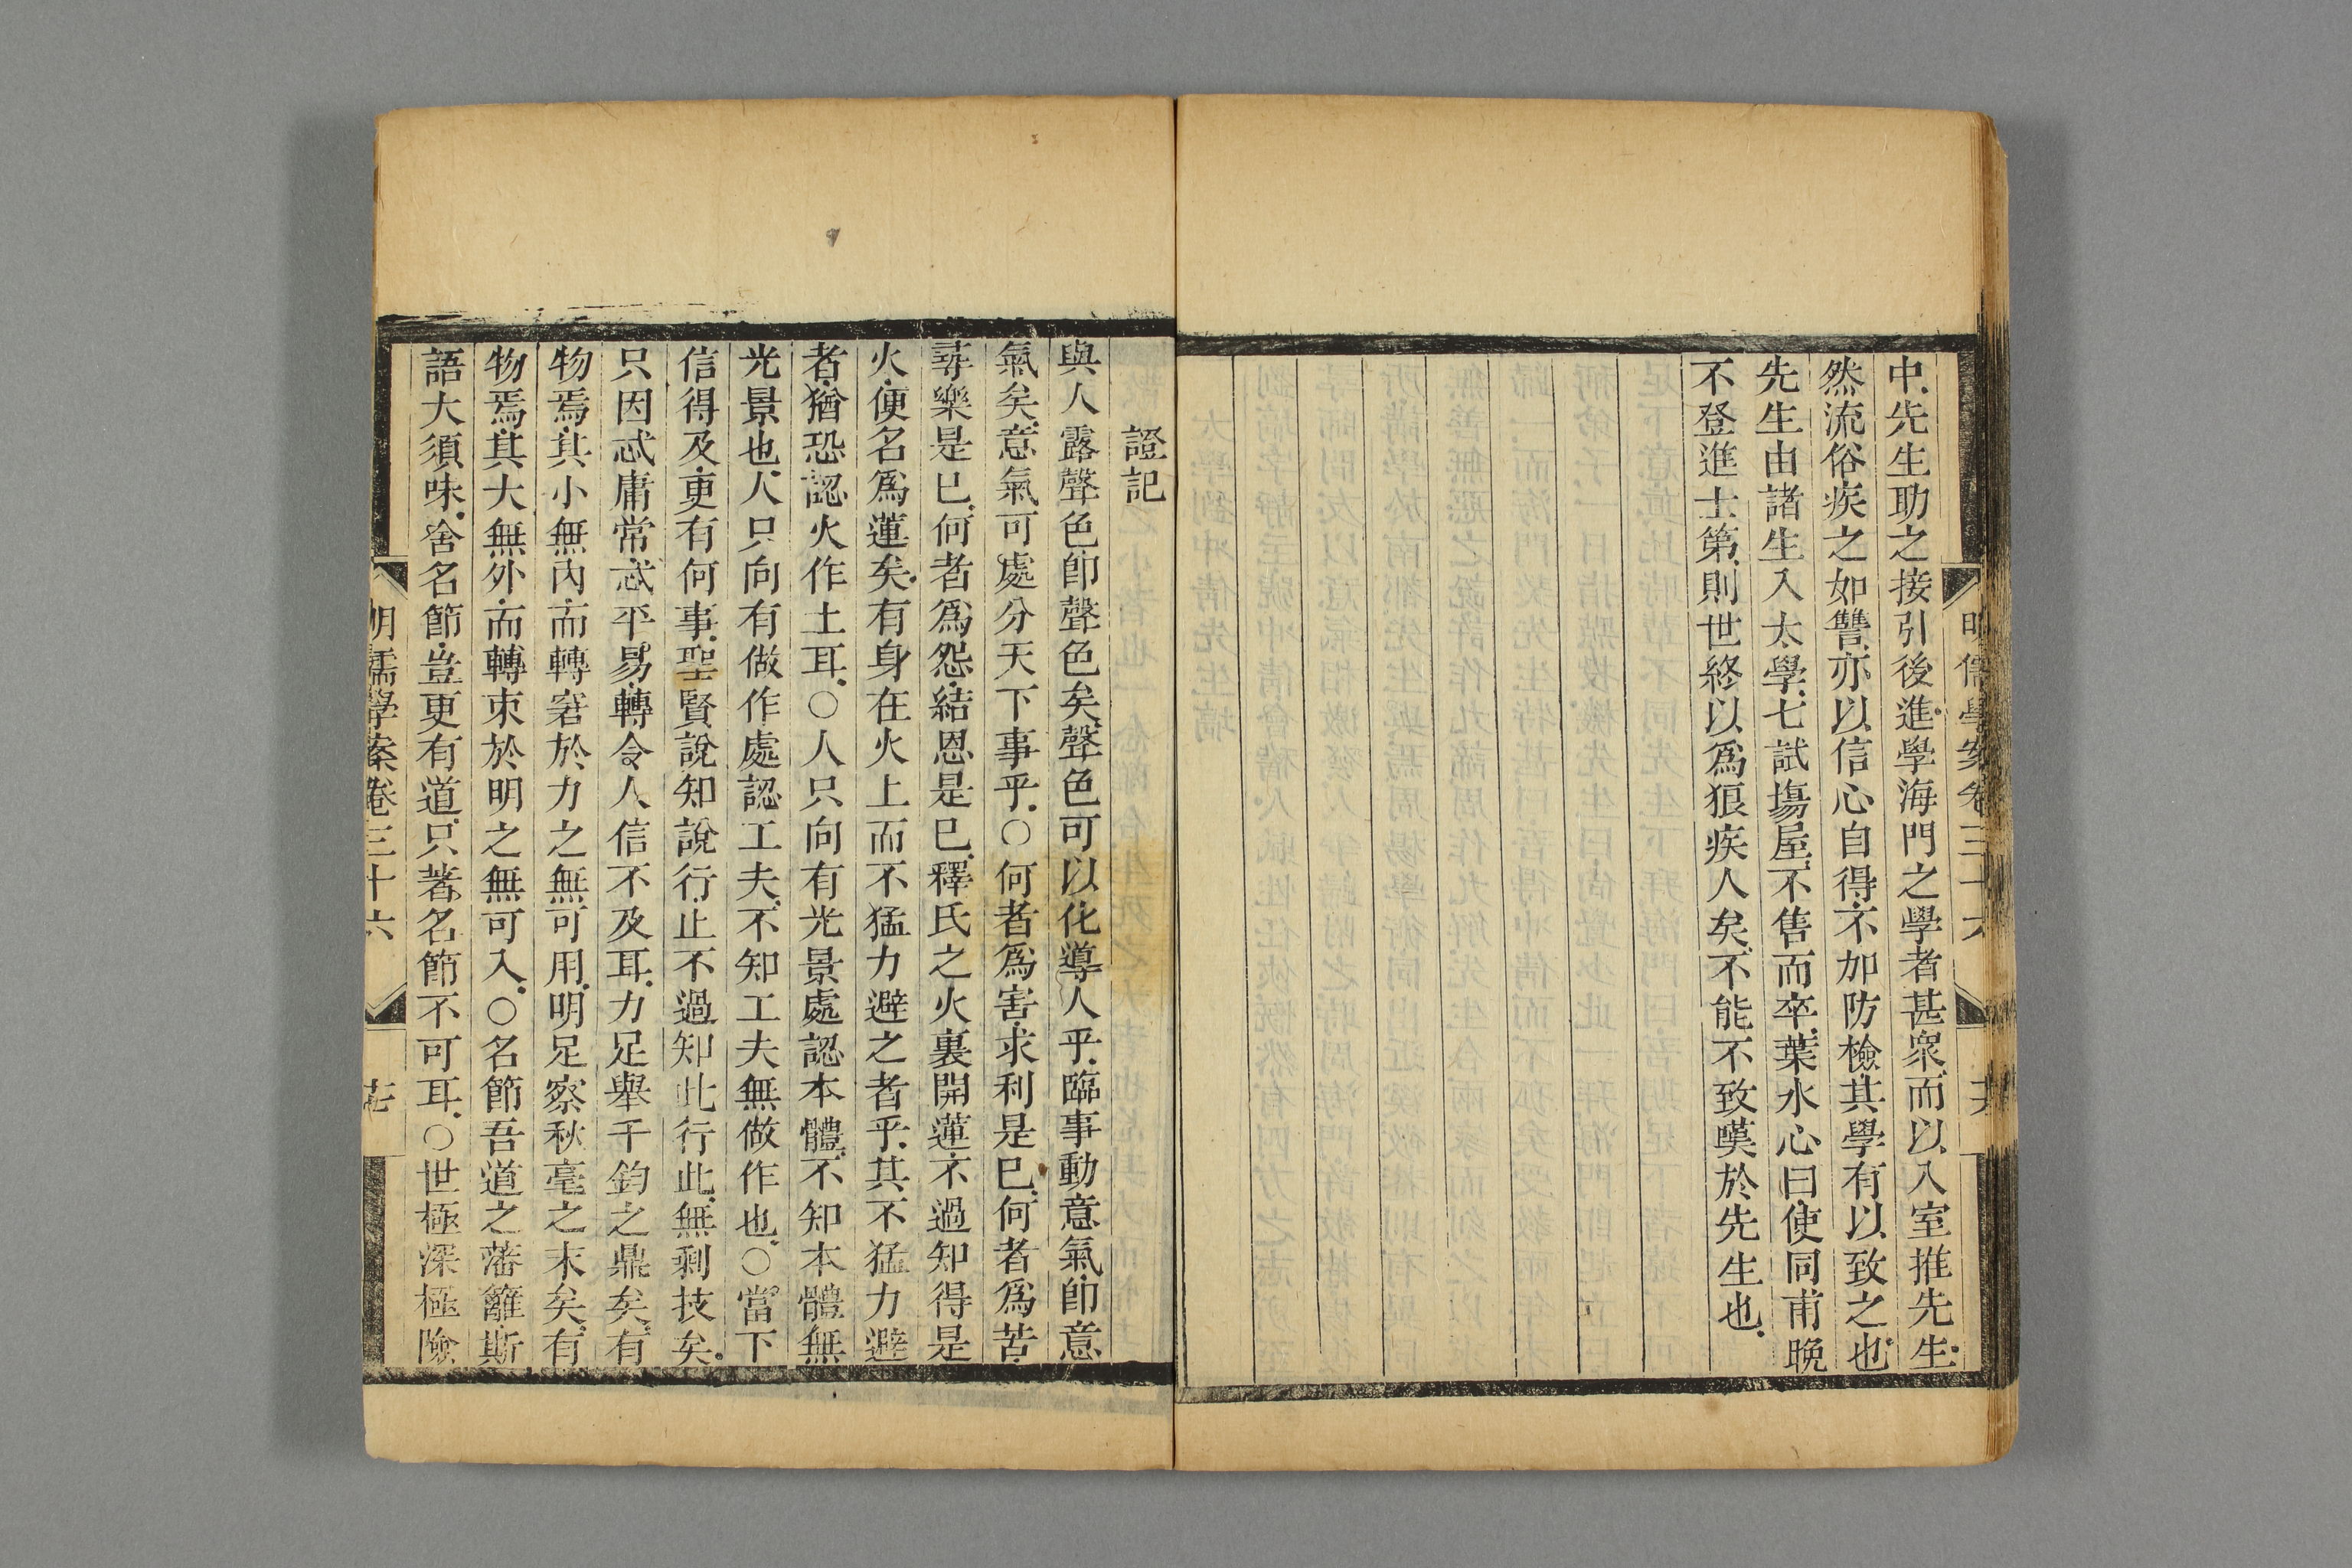 明儒學案卷三十六
中先生助之接引後進學海門之學者甚衆而以入室推先生
然流俗疾之如讐亦以信心自得不加防檢其學有以致之也
先生由諸生入太學七試塲屋不售而卒葉水心曰使同甫晚
不登進士第則世終以爲狼疾人矣不能不致嘆於先生也
證記
與人露聲色卽聲色矣聲色可以化導人乎臨事動意氣卽意
氣矣意氣可處分天下事乎○何者爲害求利是已何者爲苦
尋樂是已何者爲怨結恩是已釋氏之火裏開蓮不過知得是
火便名爲蓮矣有身在火上而不猛力避之者乎其不猛力避
者猶恐認火作土耳○人只向有光景處認本體不知本體無
光景也人只向有做作處認工夫不知工夫無做作也○當下
信得及更有何事聖賢說知說行止不過知此行此無剩技矣
只因忒庸常忒平易轉令人信不及耳力足舉千鈞之鼎矣有
物焉其小無內而轉窘於力之無可用明足察秋毫之末矣有
物焉其大無外而轉束於明之無可入○名節吾道之藩籬斯
語大須味舍名節豈更有道只著名節不可耳○世極深極險
明儒學案卷三十六